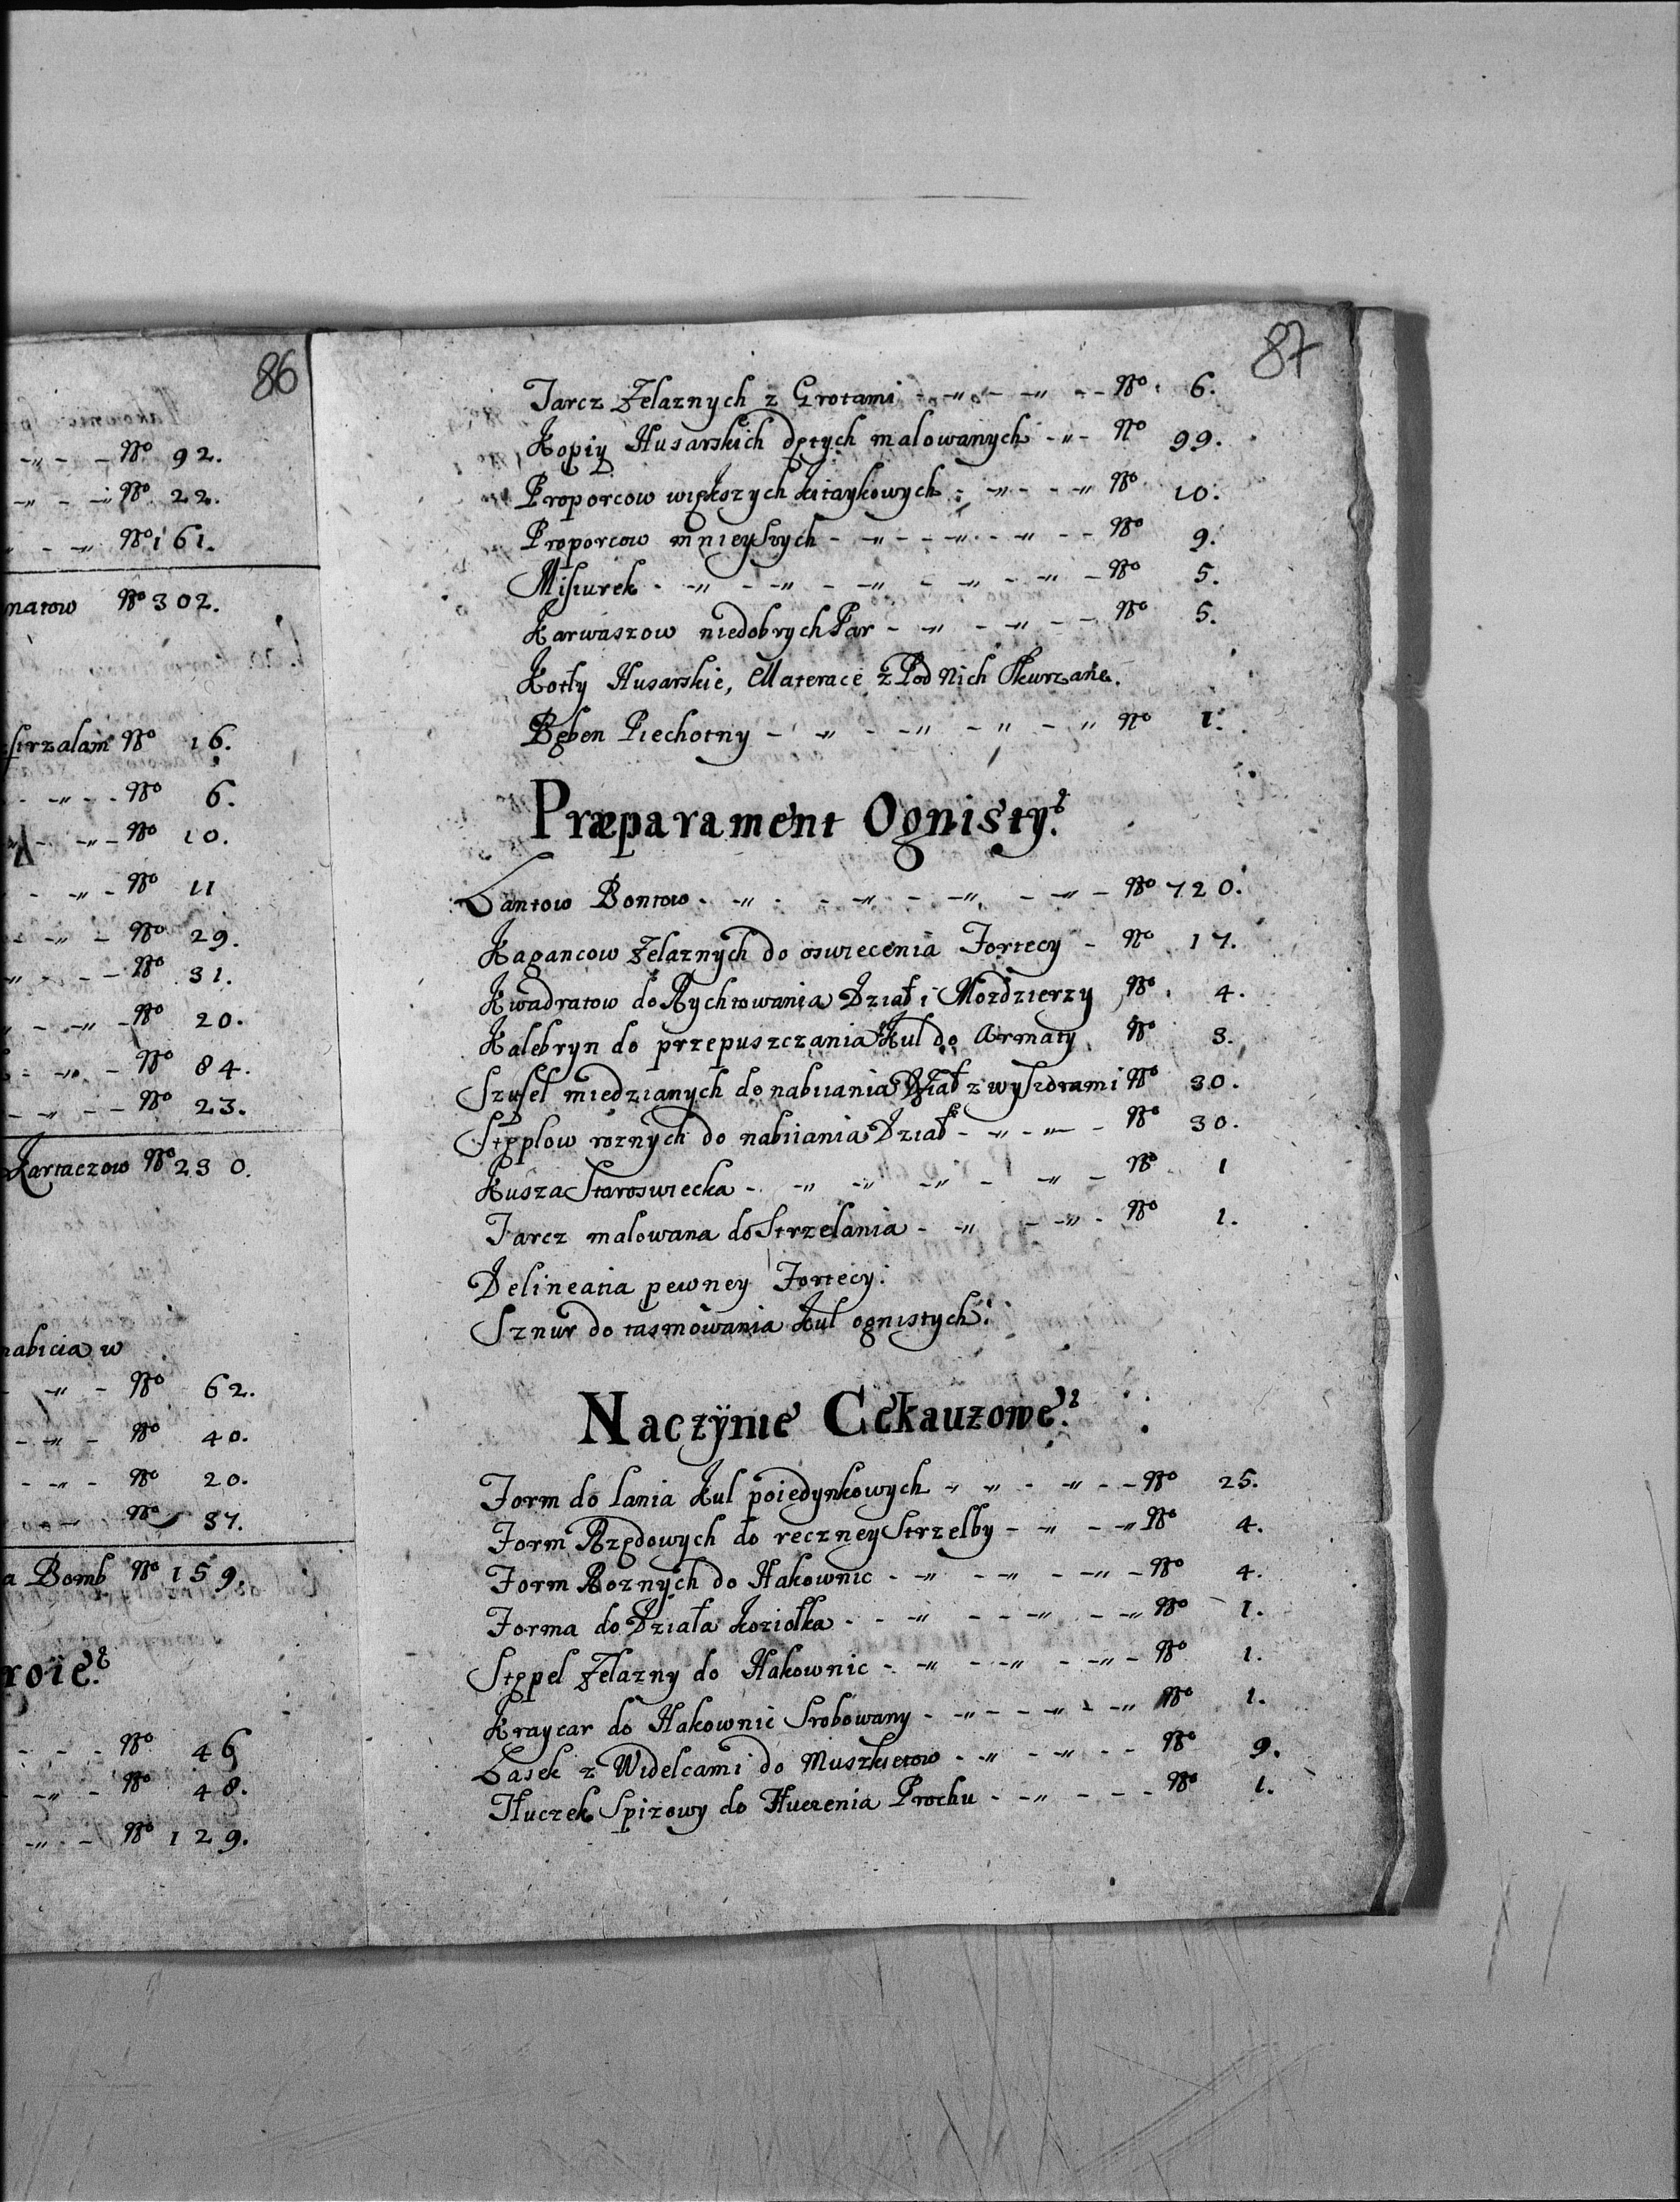 86
- „ - - No 92.
- „ - - No 22.
- - „ No 161.
matow No 302.
strzalam No 16.
- „ - - No 6.
- „ - No 10.
- „ - No 11
- „ - No 29.
„ - - - No 31.
- - „ - No 20.
- „ - No 84.
- „ - - No 23.
Kartaczow No 230.
nabicia w
- „ - No 62.
- „ - No 40.
- - „ - No 20.
- „ No 37.
a Bomb No 159.
roie.
- - - No 46
- „ - No 48.
- „ - No 129.
87
Tarcz Zelaznych z Grotami - „ - - „ - - No 6.
Kopiy Husarskich dętych malowanych - „ - No 99.
Proporcow większych kitaykowych - „ - - „ No 10.
Proporcow mnieyszych - „ - - „ - „ - - No 9.
Misiurek - „ - „ - „ - „ - „ - No 5.
Karwaszow niedobrych Par - „ - „ - - No 5.
Kotły Husarskie, Materace z Pod Nich Skurzane.
Bęben Piechotny - „ - „ - „ - „ No 1.
Præparament Ognisty.
Lantow Bontow - „ - - „ - „ - „ - No 720.
Kagancow Zelaznych do oswiecenia Fortecy - No 17.
Kwadratow do Rychtowania Dział i Mozdzierzy No 4.
Kalebryn do przepuszczania Kul do Armaty No 3.
Szufel miedzianych do nabiiania Dział z wysiorami No 30.
Stęplow roznych do nabiiania Dział - „ - „ - No 30.
Kusza Staroswiecka - „ „ „ - „ - No 1
Tarcz malowana do Strzelania - „ - „ - No 1.
Delineatia pewney Fortecy.
Sznur do tasmowania Kul ognistych.
Naczÿnie Cekauzowe.
Form do lania Kul poiedynkowych - „ - „ - - No 25.
Form Rzędowych do reczney Strzelby - „ - „ No 4.
Form Roznych do Hakownic - „ - „ - „ - No 4.
Forma do Działa koziołka - - „ - - „ - „ No 1.
Stępel Zelazny do Hakownic - „ - „ - „ - No 1.
Kraycar do Hakownic Srobowany - „ - - „ - „ No 1.
Lasek z Widelcami do Muszkietow - „ - „ - - No 9.
Tłuczek Spizowy do Tłuczenia Prochu - „ - - - No 1.